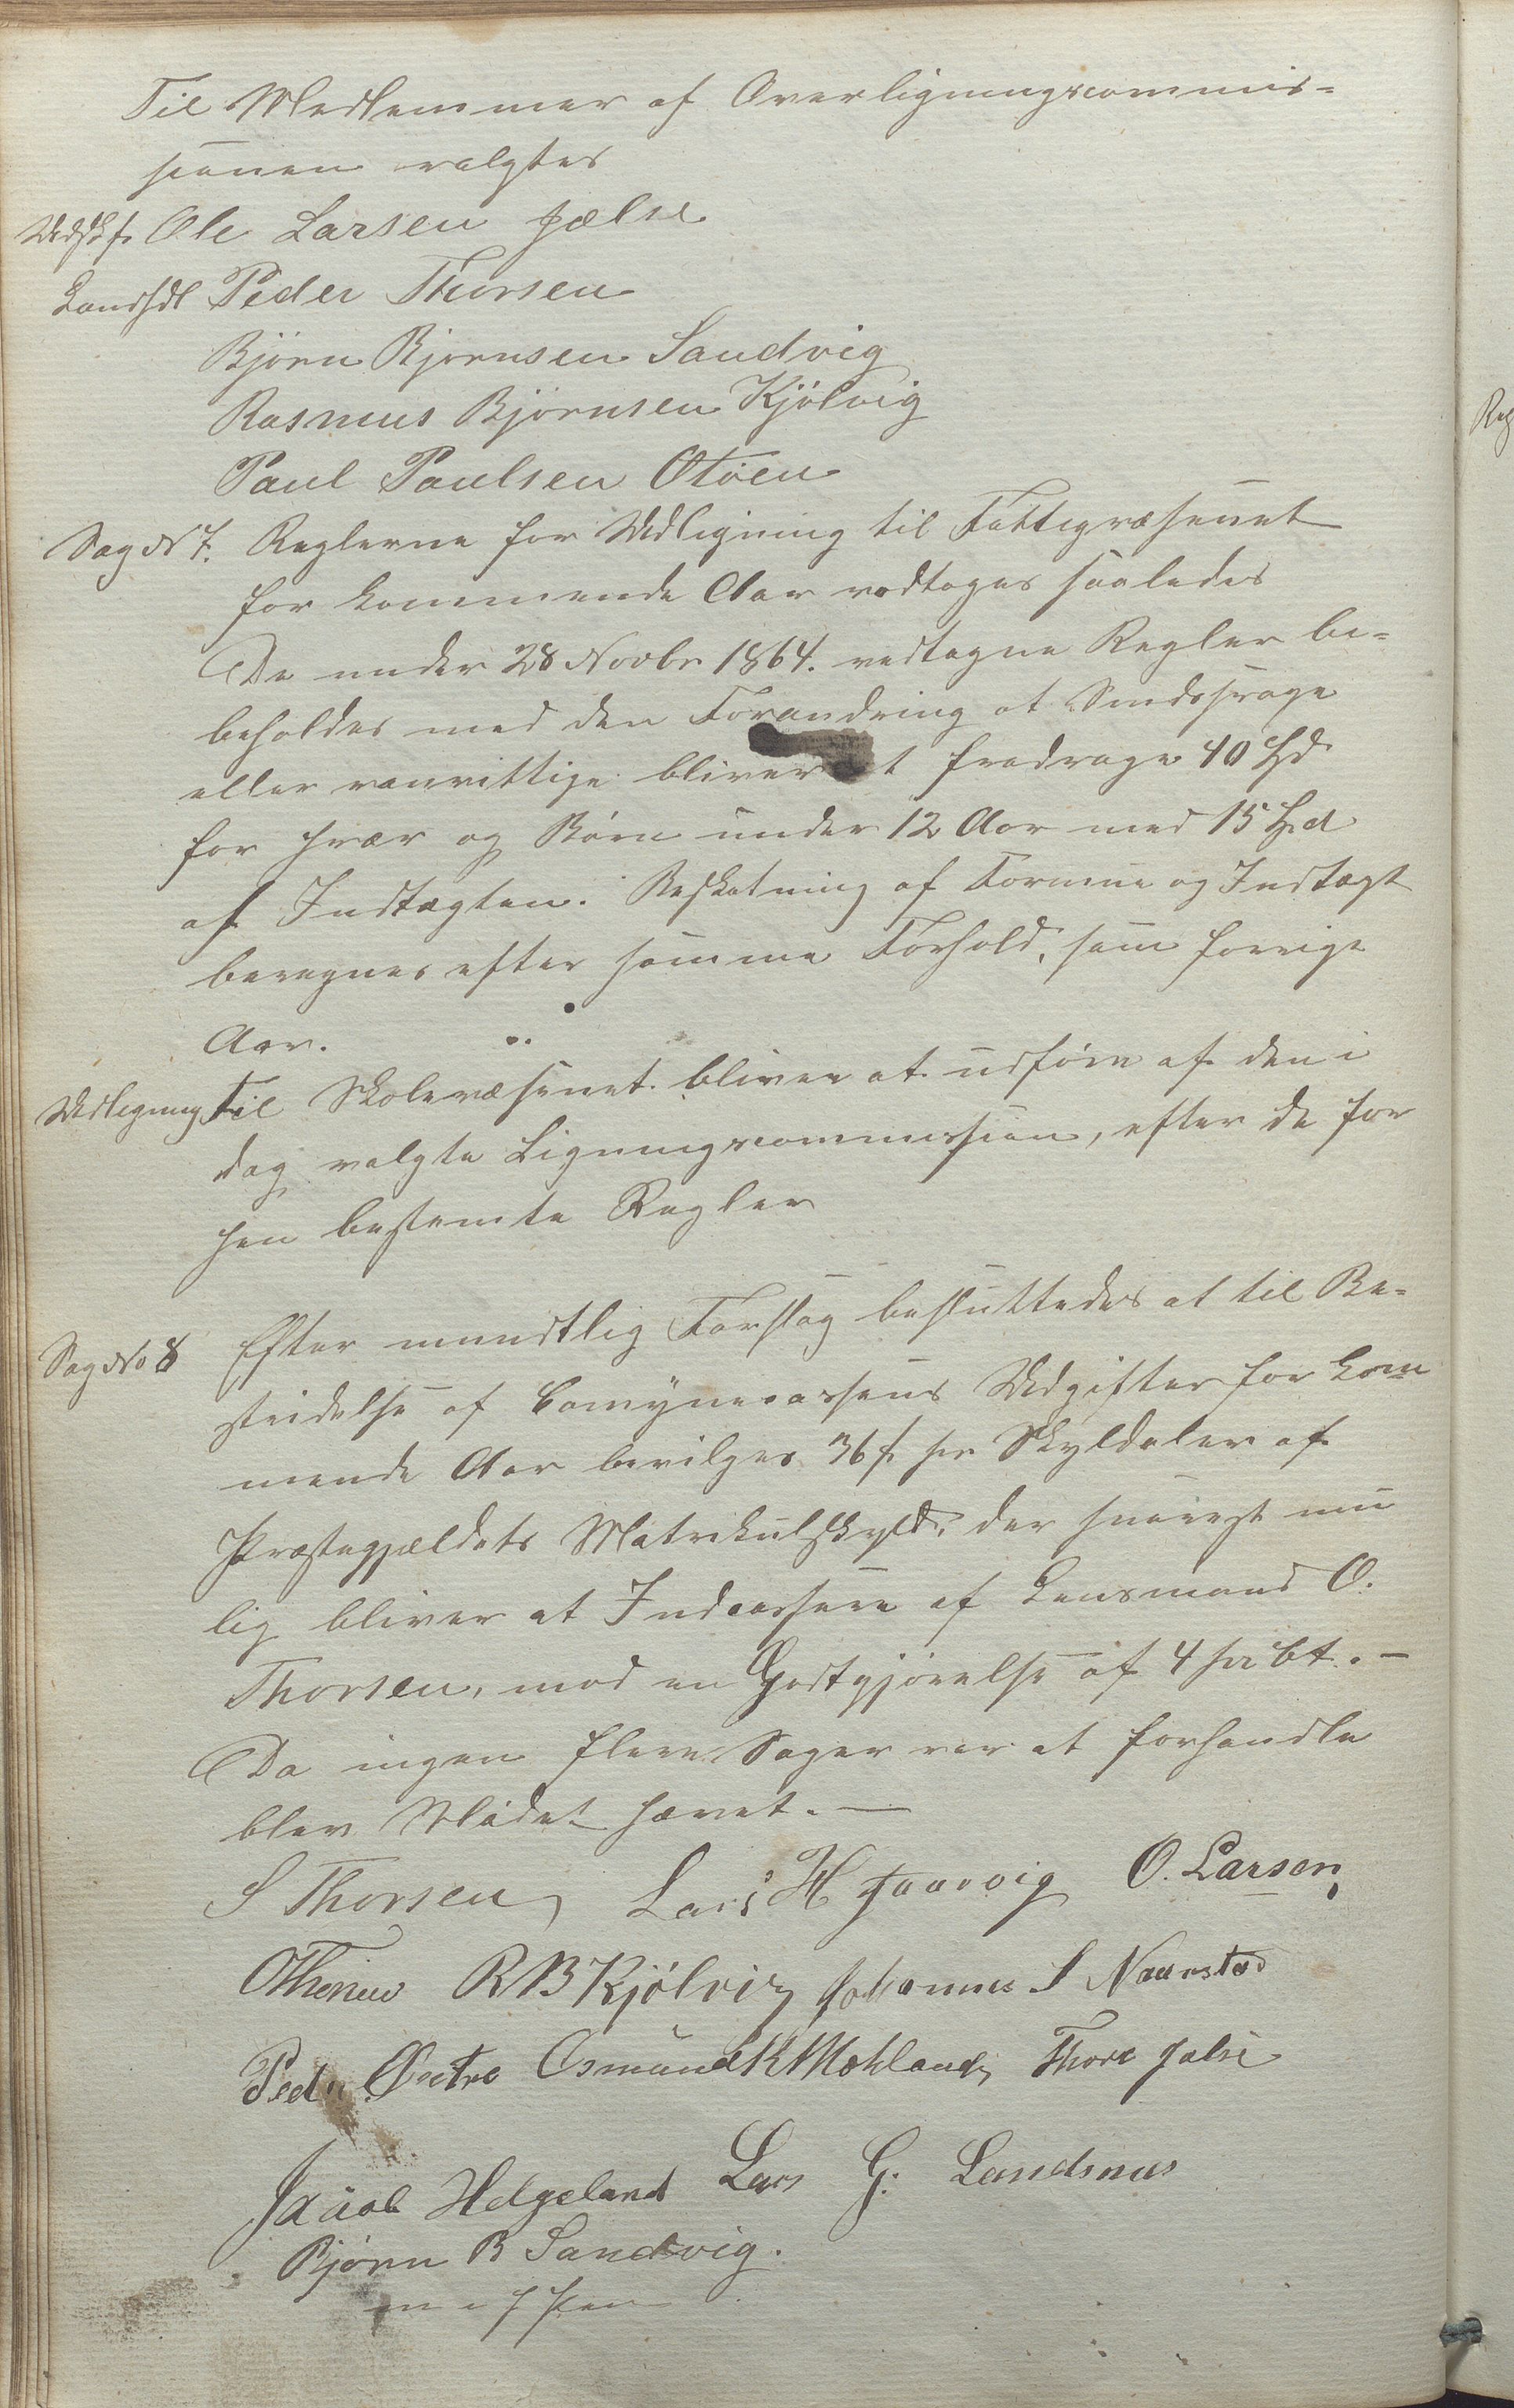 Til Medlemmer af Overligningscommis-
sionen valgtes
Udskf. Ole Larsen Jælse
Landhdl Peder Thorsen
Bjørn Bjørnsen Sandvig
Rasmus Bjørnsen Kjølvig
Paul Paulsen Otøen
Sag No 7. Reglerne for Udligning til Fattigvæsenet
for kommende Aar vedtoges saaledes
De under 28 Novbr 1864. vedtagne Regler be-
beholdes med den Forandring at Sindssvage
eller vanvittige bliver at fradrage 40 Spd
for hver og Børn under 12 Aar med 15 Spd
af Indtægten. Beskatning af Formue og Indtægt
beregnes efter samme Forhold, som forrige
Aar.
Udligning Til Skolevæsenet bliver at udføre af den i
dag valgte Ligningscommission, efter de for
hen bestemte Regler
Sag No 8 Efter mundtlig Forslag besluttedes at til Be-
stridelse af Comunecassens Udgifter for kom
mende Aar bevilges 36 s. pr Skylddaler af
Præstegjældets Matrikulskyld, der snarest mu
lig bliver at Indcassere af Lensmand O.
Thorsen, mod en Godtgjørelse af 4 pr Ct. -
Da ingen flere Sager var at forhandle
blev Mødet hævet. -
S Thorsen Lars H Jaarvig O. Larsen
O Thorsen R B Kjølvig Johannes S Naarstad
Peder Østre Osmund K Mokland Thore Jalse
Jacob Helgeland Lars G. Landsnes
Bjørn B Sandvig.
m i f Pen